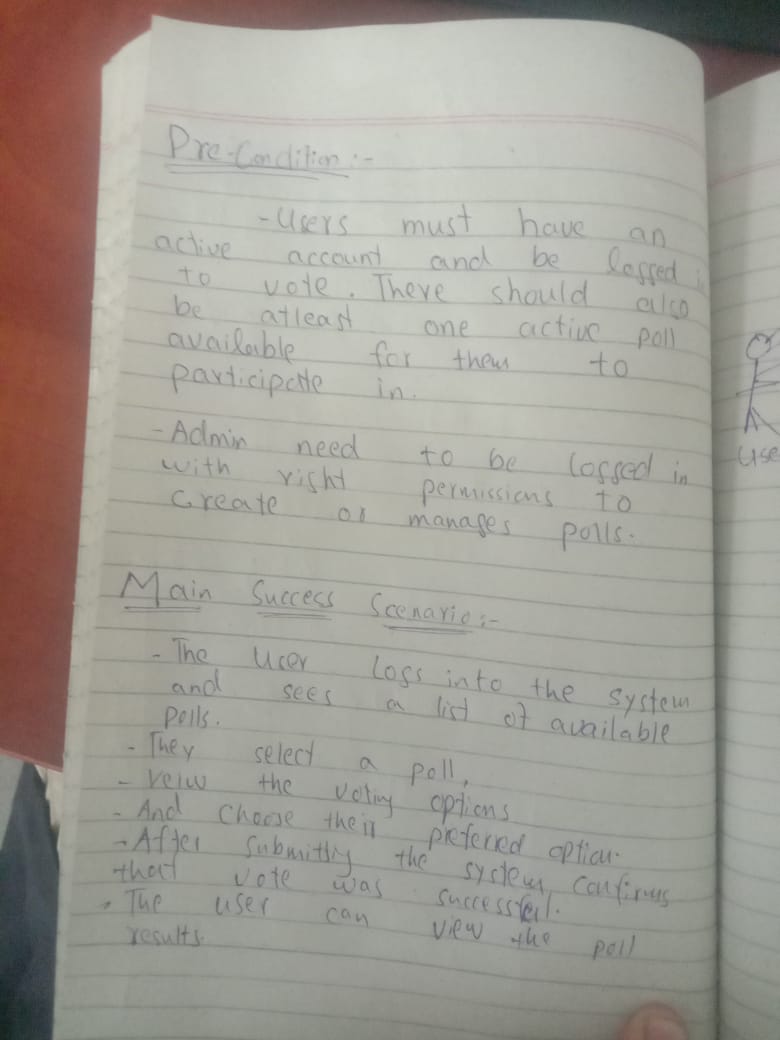 Pre-Condition :-
- Users must have an
active account and be logged i
to vote. There should also
be atleast one active poll
available for them to
participate in.
- Admin need to be logged in
with right permissions to
Create or manages polls.
Main Success Scenario :-
- The User Logs into the system
and sees a list of available
polls.
- They select a poll,
- veiw the voting options
- And choose their preferred option.
- After submitting the system confirms
that vote was successful.
- The user can view the poll
results.
Use